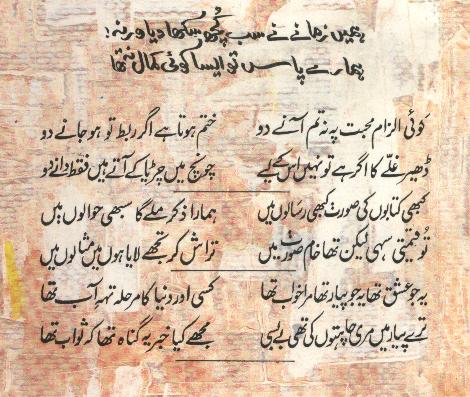 ہمیں زمانے نے سب کچھ سکھا دیا ورنہ!
ہمارے پاس تو ایسا کوئی کمال نہ تھا
کوئی الزام محبت پہ نہ تم آنے دو ختم ہوتا ہے اگر ربط تو ہو جانے دو
ڈھیر غلّے کا اگر ہے تو نہیں اس کے لیے چونچ میں چڑیا کے آتے ہیں فقط دانے دو
کبھی کتابوں کی صورت کبھی رسالوں میں ہمارا ذکر ملے گا سبھی حوالوں میں
تُو قیمتی سہی لیکن تھا خام صورت میں تراش کر تجھے لایا ہوں میں مثالوں میں
یہ جو عشق تھا یہ جو پیار تھا مرا خواب تھا کسی اور دنیا کا مرحلہ تہہِ آب تھا
ترے پیار میں مری چاہتوں کی تھی بے بسی مجھے کیا خبر یہ گناہ تھا کہ ثواب تھا